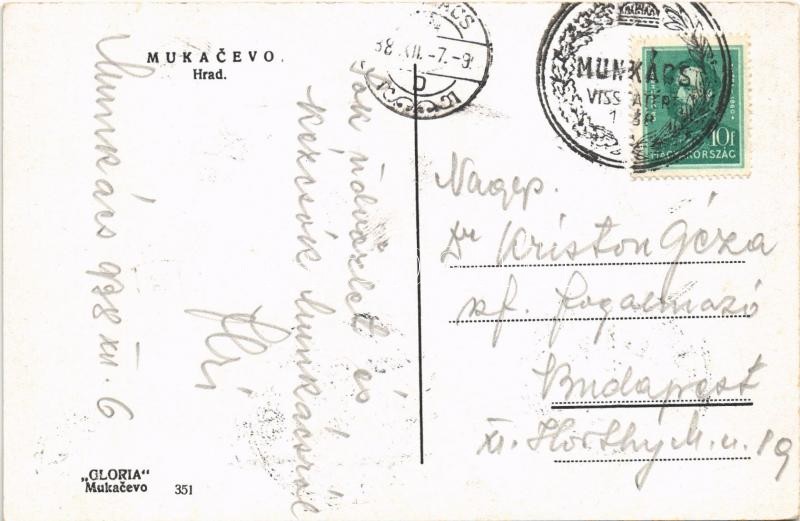 MUKAČEVO
Hrad.
Munkács 938 XII. 6
Sok üdvözlet és
kézcsók Munkácsról
ÁCS
38 XII. -7. -9
D
MUNKÁCS
VISSZATÉRT
1938
10f
MAGYARORSZÁG
Nagys.
Dr Kriston Géza
pf. fogalmazó
Budapest
XI. Horthy M. u. 19
„GLORIA"
Mukačevo 351